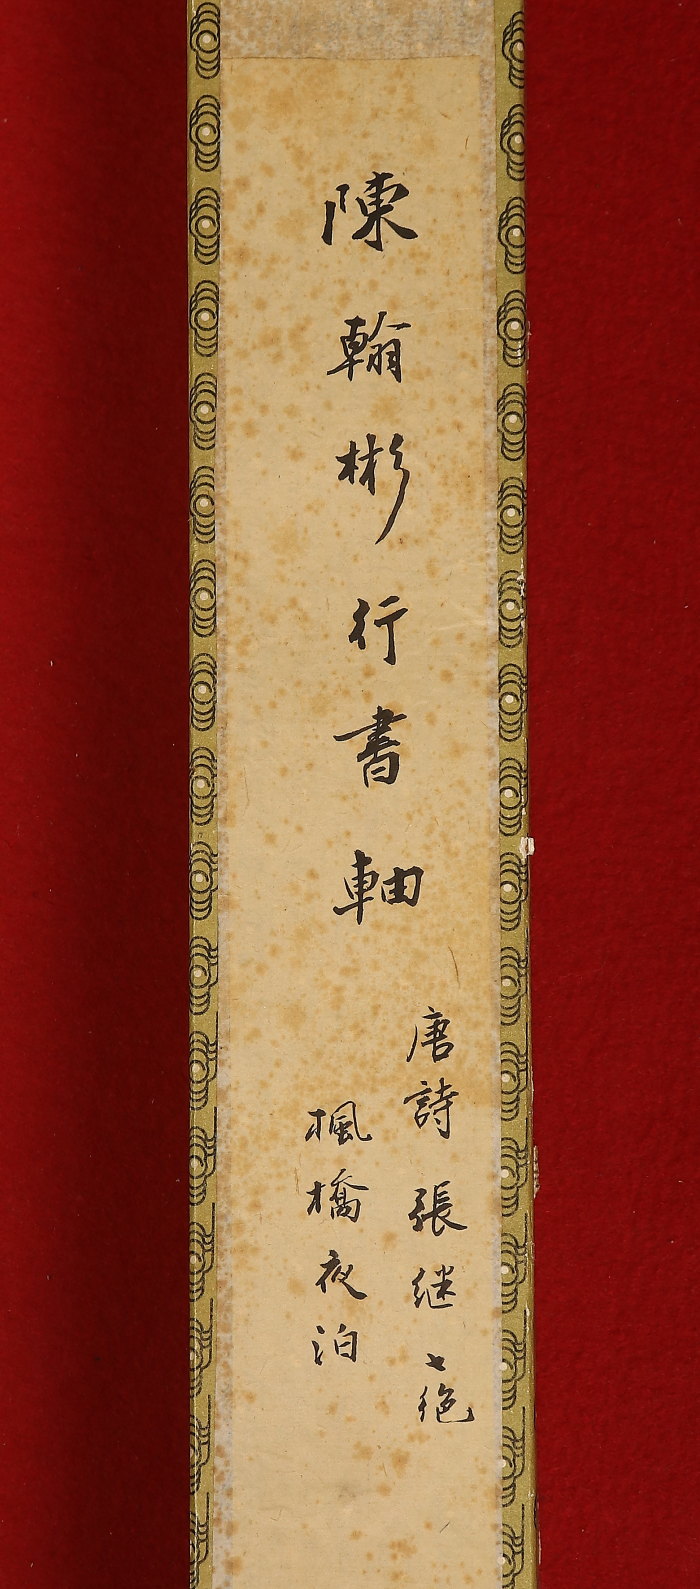 陳翰彬行書軸
唐詩張継七絶
楓橋夜泊